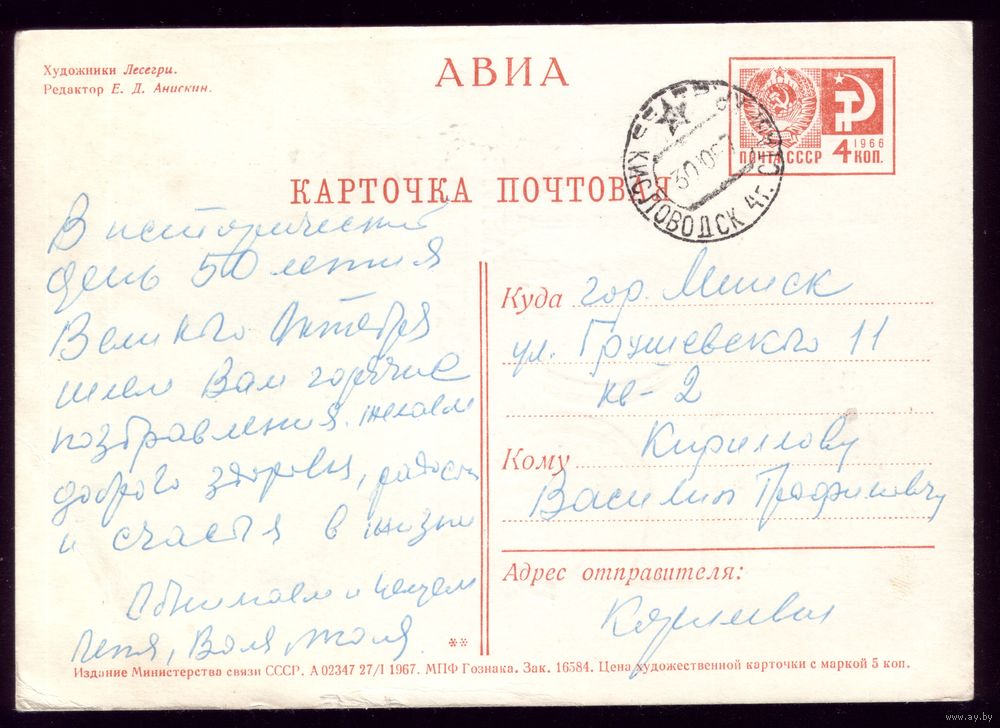 Художники Лесегри.
Редактор Е. Д. Анискин.
АВИА
КАРТОЧКА ПОЧТОВАЯ
ПОЧТА СССР 4 1966 КОП.
КИСЛОВОДСК 4 Г.
В исторический
день 50 летия
Великого Октября
шлем Вам горячие
поздравления. желаем
доброго здоровья, радости
и счастья в жизни
Обнимаем и целуем
Петя, Валя, Толя.
Куда гор. Минск
ул. Грушевского 11
кв-2
Кому Кириллову
Василию Трофимовичу
Адрес отправителя:
**
Издание Министерства связи СССР. А 02347 27/I 1967. МПФ Гознака. Зак. 16584. Цена художественной карточки с маркой 5 коп.
www.ay.by